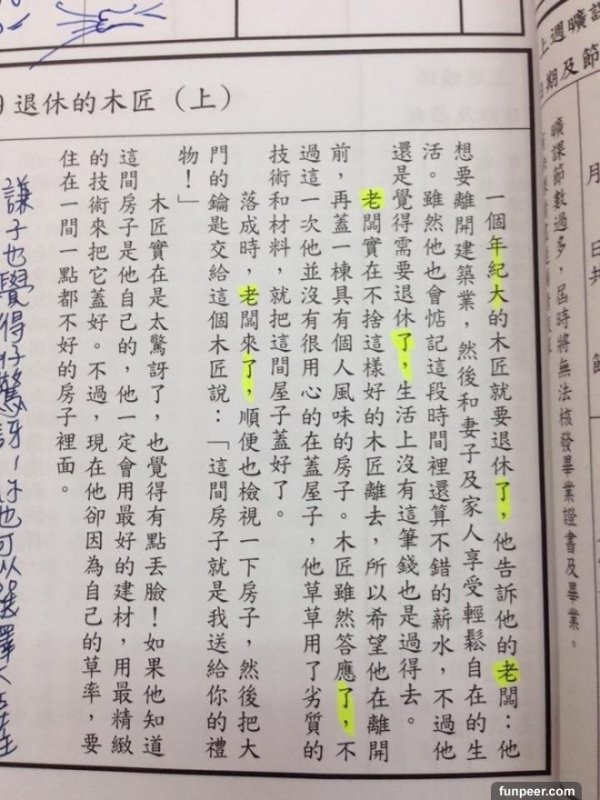 退休的木匠（上）
一個年紀大的木匠就要退休了，他告訴他的老闆：他
想要離開建築業，然後和妻子及家人享受輕鬆自在的生
活。雖然他也會惦記這段時間裡還算不錯的薪水，不過他
還是覺得需要退休了，生活上沒有這筆錢也是過得去。
老闆實在不捨這樣好的木匠離去，所以希望他在離開
前，再蓋一棟具有個人風味的房子。木匠雖然答應了，不
過這一次他並沒有很用心的在蓋屋子，他草草用了劣質的
技術和材料，就把這間屋子蓋好了。
落成時，老闆來了，順便也檢視一下房子，然後把大
門的鑰匙交給這個木匠說：「這間房子就是我送給你的禮
物！」
木匠實在是太驚訝了，也覺得有點丟臉！如果他知道
這間房子是他自己的，他一定會用最好的建材，用最精緻
的技術來把它蓋好。不過，現在他卻因為自己的草率，要
住在一間一點都不好的房子裡面。
上週曠課
日期及節
月
日共
節
曠課節數過多，屆時將無法核發畢業證書及畢業。
funpeer.com